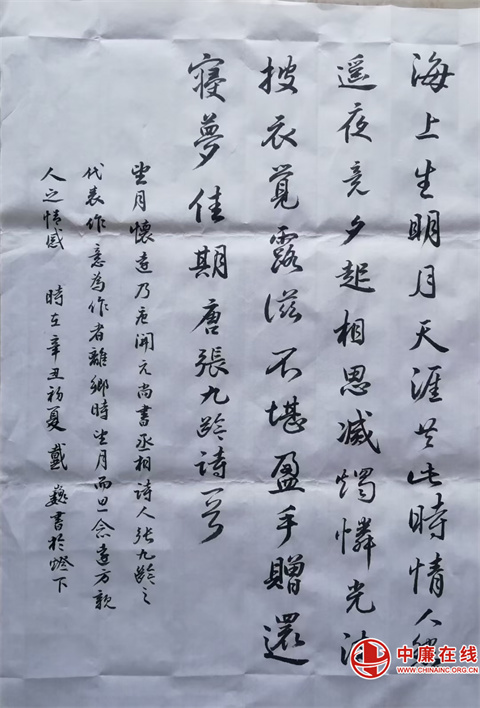 海上生明月天涯共此時情人怨
遥夜竟夕起相思滅燭憐光滿
披衣覺露滋不堪盈手贈還
寝夢佳期唐張九龄詩一首
望月懷遠乃唐開元尚書丞相詩人张九龄之
代表作意為作者離鄉時望月而思念遠方親
人之情感 時在辛丑初夏 戴巍書於燈下
中廉在线
WWW.CHINAINC.ORG.CN